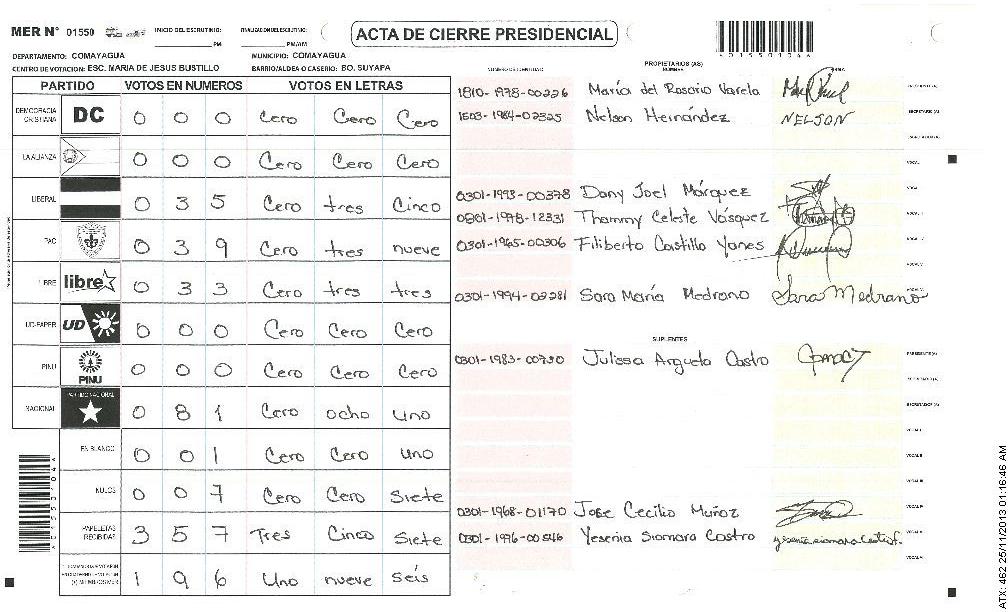 MER N° 01550 INICIO DEL ESCRUTINIO: ______PM FINALIZACION DEL ESCRUTINIO: ______PM/AM
ACTA DE CIERRE PRESIDENCIAL
DEPARTAMENTO: COMAYAGUA MUNICIPIO: COMAYAGUA
CENTRO DE VOTACION: ESC. MARIA DE JESUS BUSTILLO BARRIO/ALDEA O CASERIO: BO. SUYAPA
PARTIDO VOTOS EN NUMEROS VOTOS EN LETRAS
DEMOCRACIA CRISTIANA DC 0 0 0 Cero Cero Cero
LA ALIANZA 0 0 0 Cero Cero Cero
LIBERAL 0 3 5 Cero tres Cinco
PAC 0 3 9 Cero tres nueve
LIBRE libre 0 3 3 Cero tres tres
UD-FAPER UD 0 0 0 Cero Cero Cero
PINU PINU 0 0 0 Cero Cero Cero
NACIONAL PARTIDO NACIONAL 0 8 1 Cero ocho uno
EN BLANCO 0 0 1 Cero Cero uno
NULOS 0 0 7 Cero Cero Siete
PAPELETAS RECIBIDAS 3 5 7 Tres Cinco Siete
1 9 6 Uno nueve seis
NUMERO DE IDENTIDAD PROPIETARIOS (AS) NOMBRE FIRMA
1810-1978-00226 María del Rosario Varela PRESIDENTE (A)
1503-1984-02325 Nelson Hernández NELSON SECRETARIO (A)
ESCRUTADOR (A)
VOCAL I
0301-1993-00378 Dany Joel Márquez
0801-1978-12331 Thammy Celeste Vásquez
0301-1965-00306 Filiberto Castillo Yanes
0301-1994-02281 Sara María Medrano Sara Medrano
SUPLENTES
0301-1983-00730 Julissa Argueta Castro PRESIDENTE (A)
SECRETARIO (A)
ESCRUTADOR (A)
VOCAL I
VOCAL II
VOCAL III
0301-1968-01170 Jose Cecilio Muñoz VOCAL IV
0301-1976-00546 Yesenia Siomara Castro VOCAL V
ATX: 462 25/11/2013 01:16:46 AM